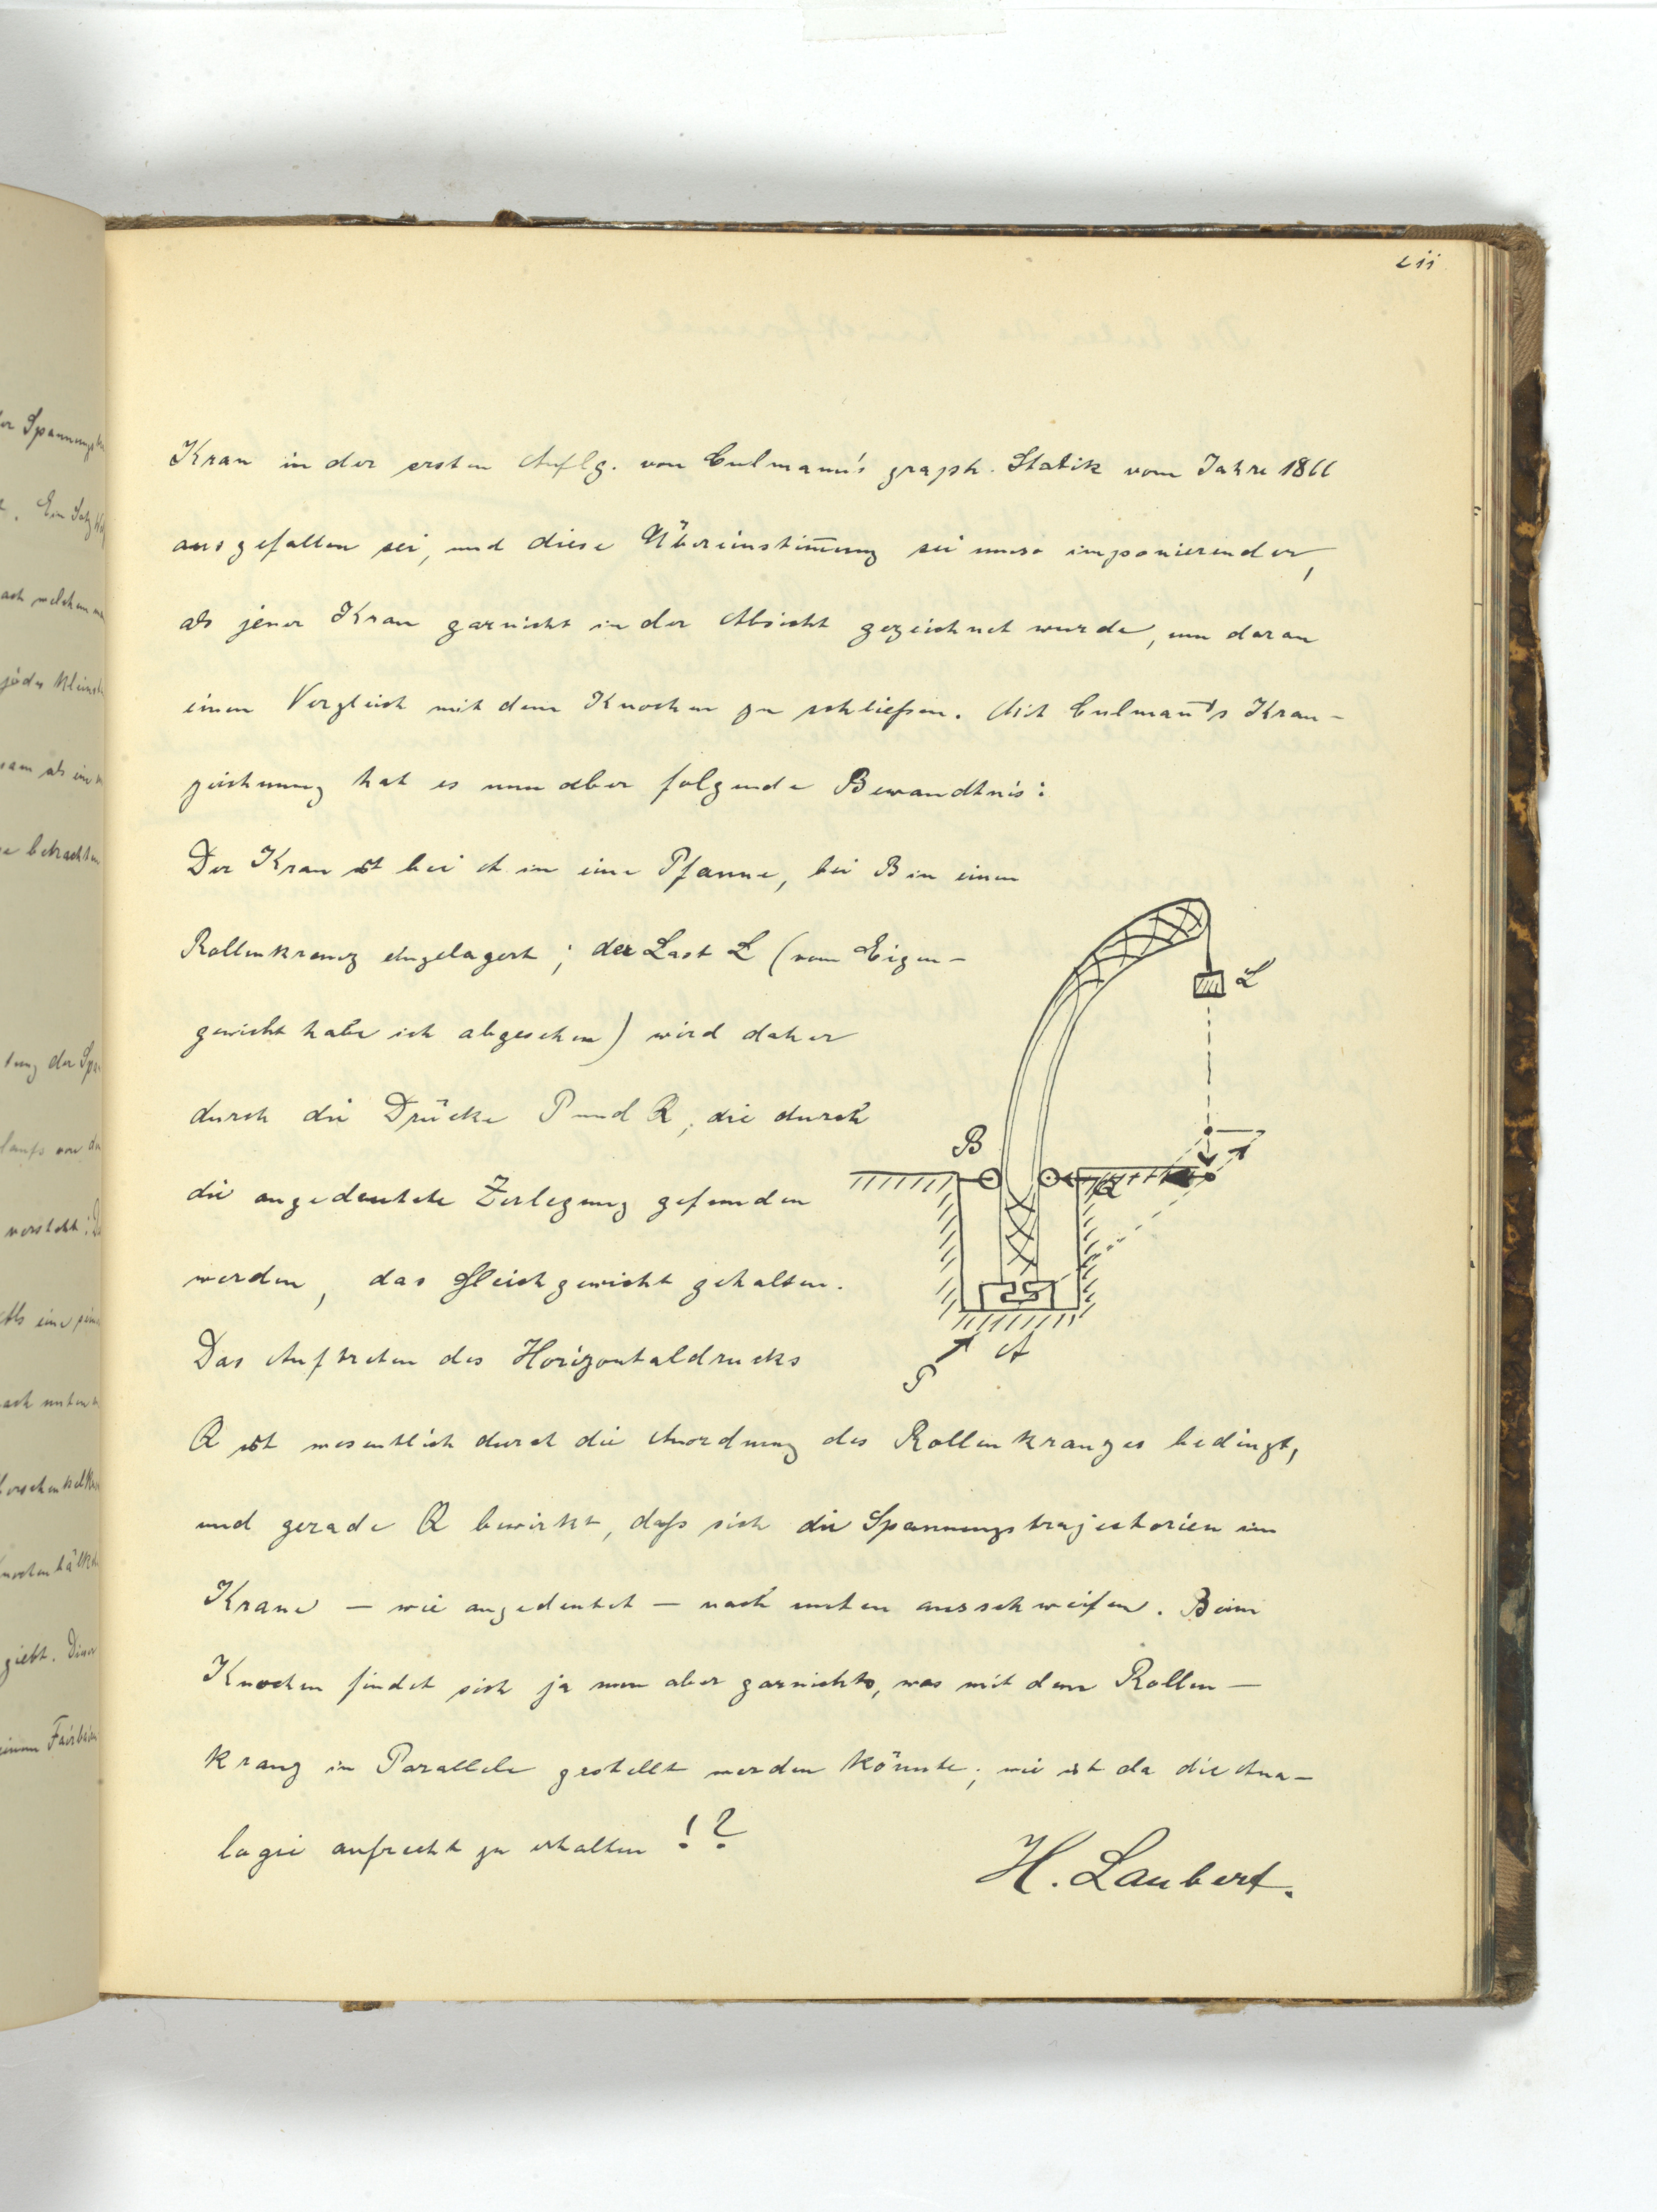 lii
Kran in der ersten Auflg. von Culmann's graph. Statik vom Jahre 1866
ausgefallen sei, und diese Übereinstim̄ung sei umso imponierender,
als jener Kran garnicht in der Absicht gezeichnet wurde, um daran
einen Vergleich mit dem Knochen zu schließen. Mit Culman̄'s Kran-
zeichnung hat es nun aber folgende Bewandtnis:
Der Kran ist bei A in eine Pfanne, bei B in einen
Rollenkranz eingelagert; der Last L (vom Eigen-
gewicht habe ich abgesehen) wird daher
durch die Drücke P und Q, die durch
die angedeutete Zerlegung gefunden
werden, das Gleichgewicht gehalten.
Das Auftreten des Horizontaldrucks
Q ist wesentlich durch die Anordnung des Rollenkranzes bedingt,
und gerade Q bewirkt, daß sich die Spannungstrajectorien im
Krane — wie angedeutet — nach unten ausschweifen. Beim
Knochen findet sich ja nun aber garnichts, was mit dem Rollen-
kranz in Parallele gestellt werden könnte; wie ist da die Ana-
logie aufrecht zu erhalten!?
H. Laubert.
L
B
Q
A
P
der Spannungs
Ein Satz
nach welchem
jedes kleinste
betrachten
der
versteht:
Als eine
nach unten
giebt. Dieser
einem Fairbairn